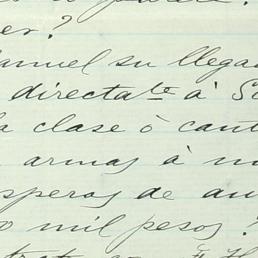 er?
anuel su llegad
directa te à S
a clase ò cant
armas à m
speras de au
o mil pesos?